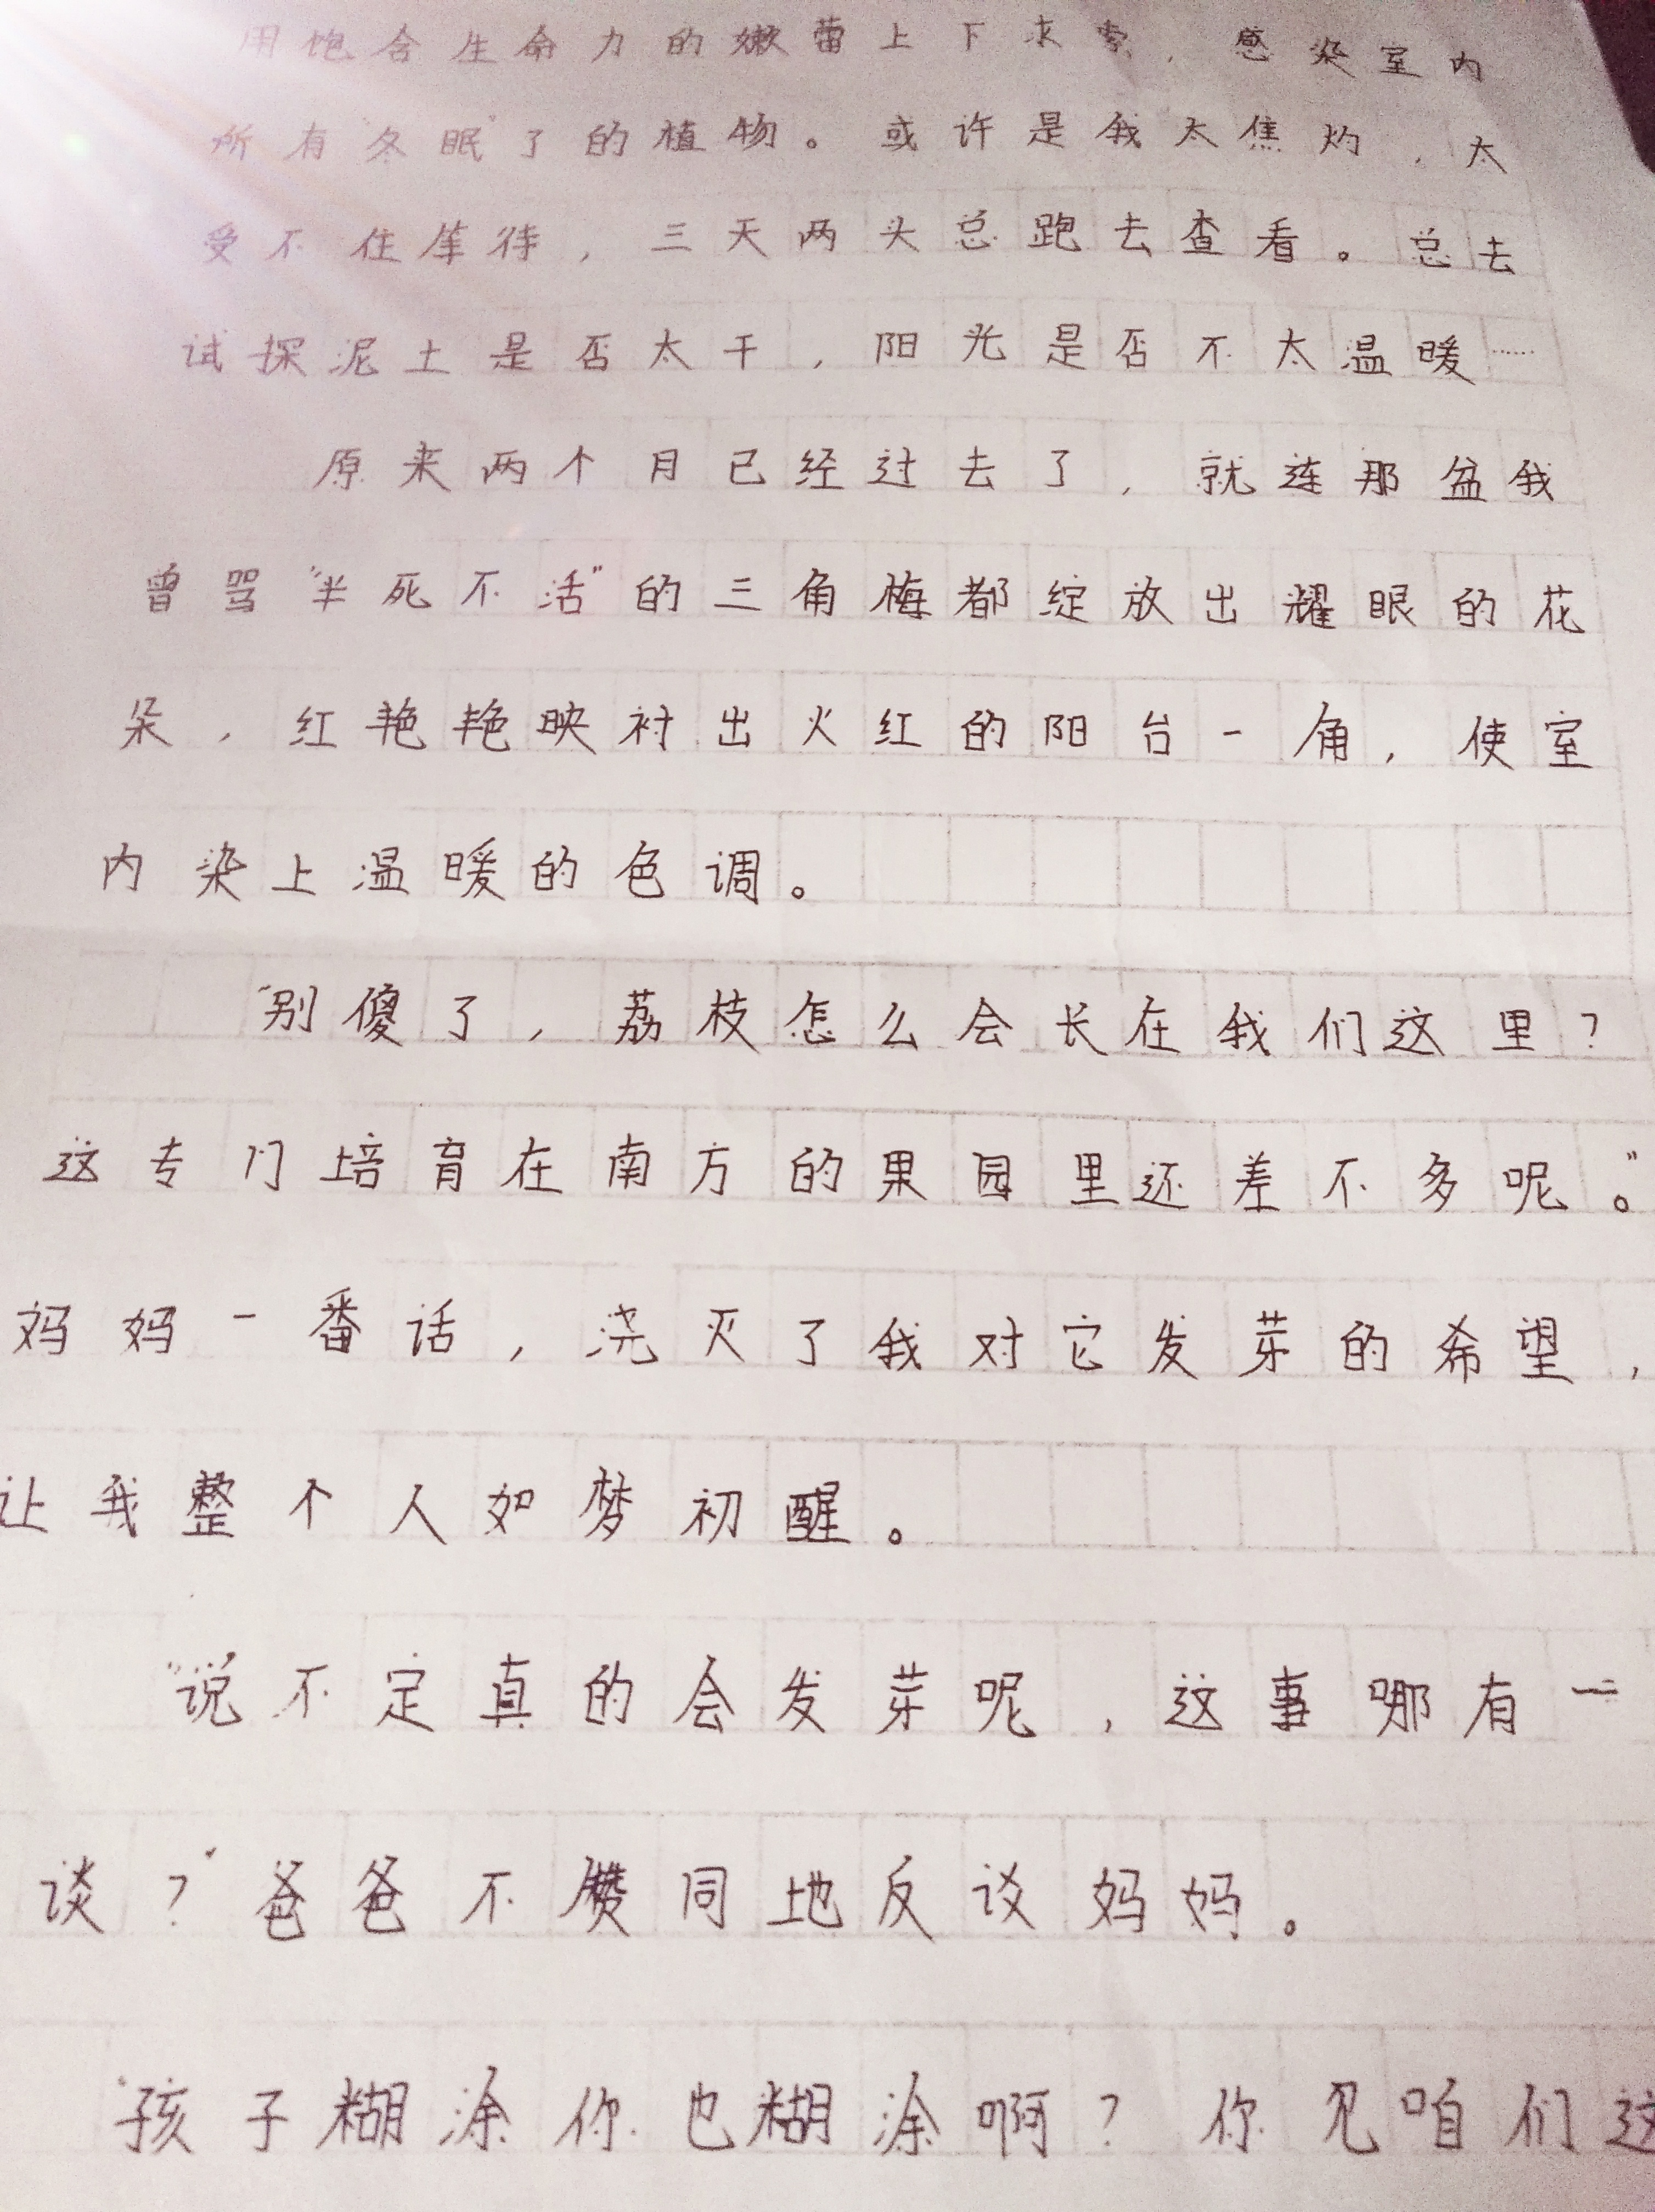 用饱含生命力的嫩蕾上下求索，感染室内
所有“冬眠”了的植物。或许是我太焦灼，太
受不住等待，三天两头总跑去查看。总去
试探泥土是否太干，阳光是否不太温暖……
原来两个月已经过去了，就连那盆我
曾骂“半死不活”的三角梅都绽放出耀眼的花
朵，红艳艳映衬出火红的阳台一角，使室
内染上温暖的色调。
“别傻了，荔枝怎么会长在我们这里？
这专门培育在南方的果园里还差不多呢。”
妈妈一番话，浇灭了我对它发芽的希望，
让我整个人如梦初醒。
“说不定真的会发芽呢，这事哪有一
谈？”爸爸不赞同地反议妈妈。
“孩子糊涂你也糊涂啊？你见咱们这